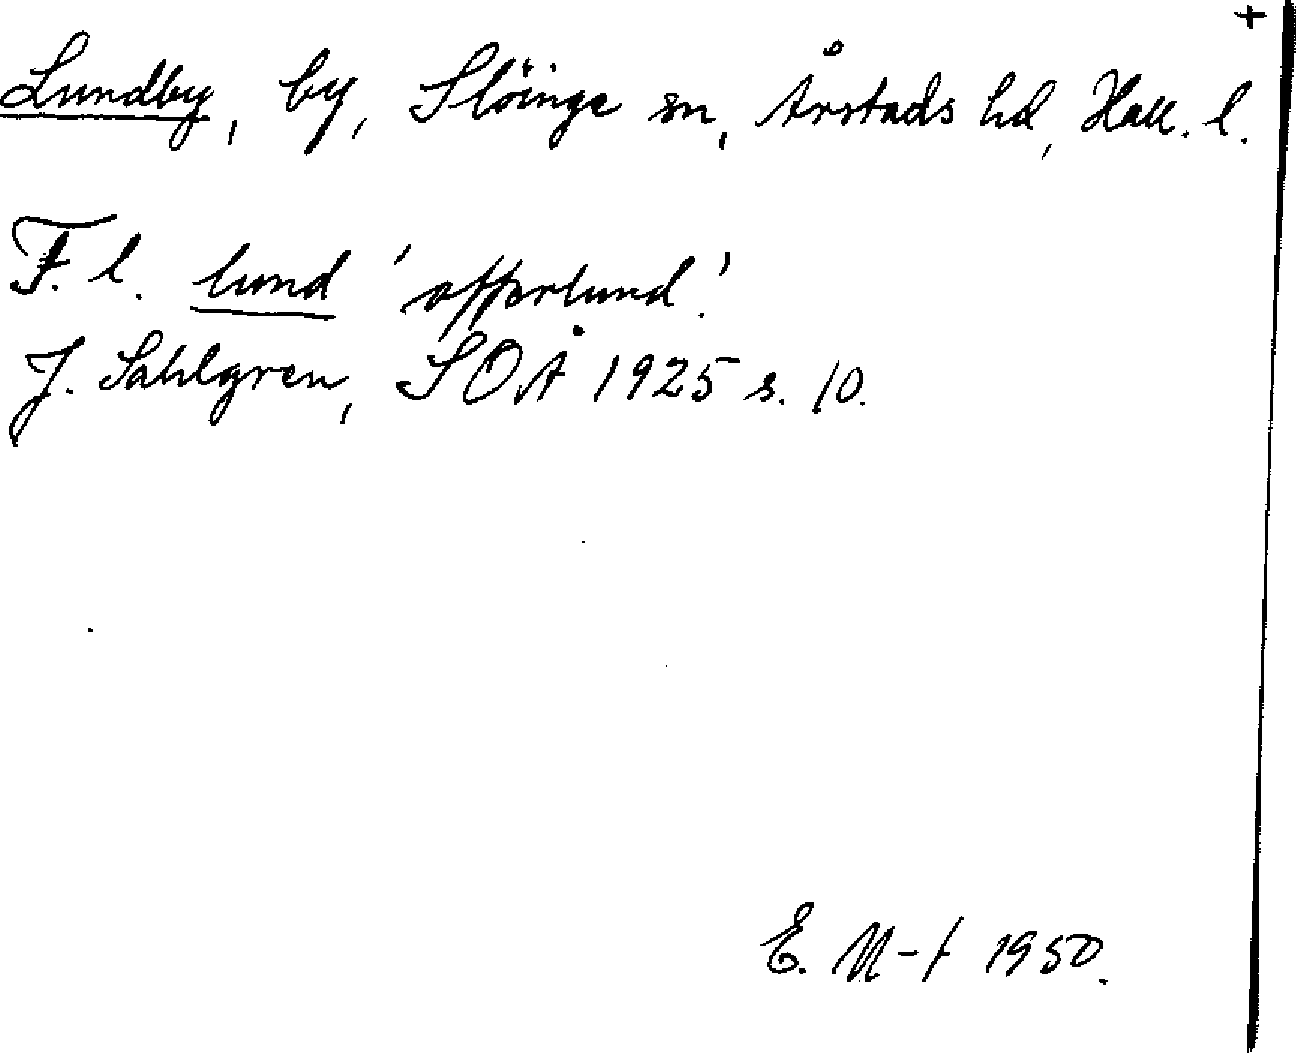 +
Lundby, by, Slöinge sn, Årstads hd, Hall. l.
F. l. lund 'offerlund'.
J. Sahlgren, SOÅ 1925 s. 10.
E. M-t 1950.